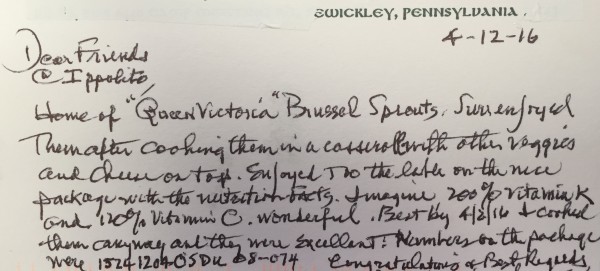 SWICKLEY, PENNSYLVANIA.
4-12-16
Dear Friends
@ Ippolito,
Home of "Queen Victoria" Brussel Sprouts. Sure enjoyed
Them after cooking them in a casserole with other veggies
and cheese on top. Enjoyed Too the lable on the nice
package with the nutrition facts. Imagine 200% Vitamin K
and 120% Vitamin C. wonderful. Best by 4/2/16 I cooked
them anyway and they were Excellent! Numbers on the package
were 1524 1204 OSDU 08-074 Congratulations & Best Regards,